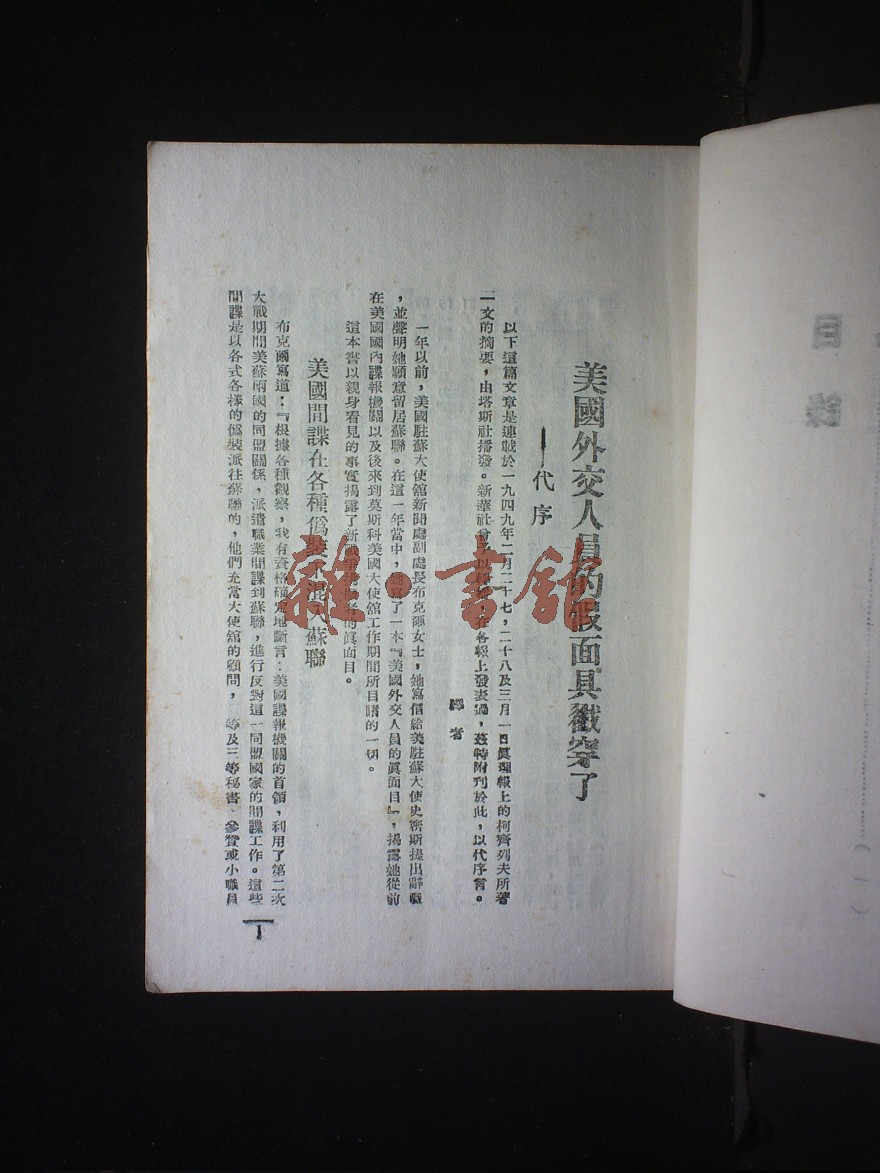 美國外交人員的假面具戳穿了
——代序
以下這篇文章是連載於一九四九年二月二十七，二十八及三月一日眞理報上的柯齊列夫所著
一文的摘要，由塔斯社播發。新華社曾予以，在各報上發表過，茲特附刊於此，以代序言。
譯者
一年以前，美國駐蘇大使舘新聞處副處長布克爾女士，她寫信給美駐蘇大使史密斯提出辭職
，並聲明她願意留居蘇聯。在這一年當中，她寫了一本『美國外交人員的眞面目』，揭露她從前
在美國國內諜報機關以及後來到莫斯科美國大使舘工作期間所目睹的一切。
這本書以親身看見的事實揭露了新戰者的眞面目。
美國間諜在各種僞裝下混入蘇聯
布克爾寫道：『根據各種觀察，我有資格確定地斷言：美國諜報機關的首領，利用了第二次
大戰期間美蘇兩國的同盟關係，派遣職業間諜到蘇聯，進行反對這一同盟國家的間諜工作。這些
間諜是以各式各樣的僞裝派往蘇聯的，他們充當大使舘的顧問，等及三等秘書、參贊或小職員
1
目錄
(一)
雜·書舘